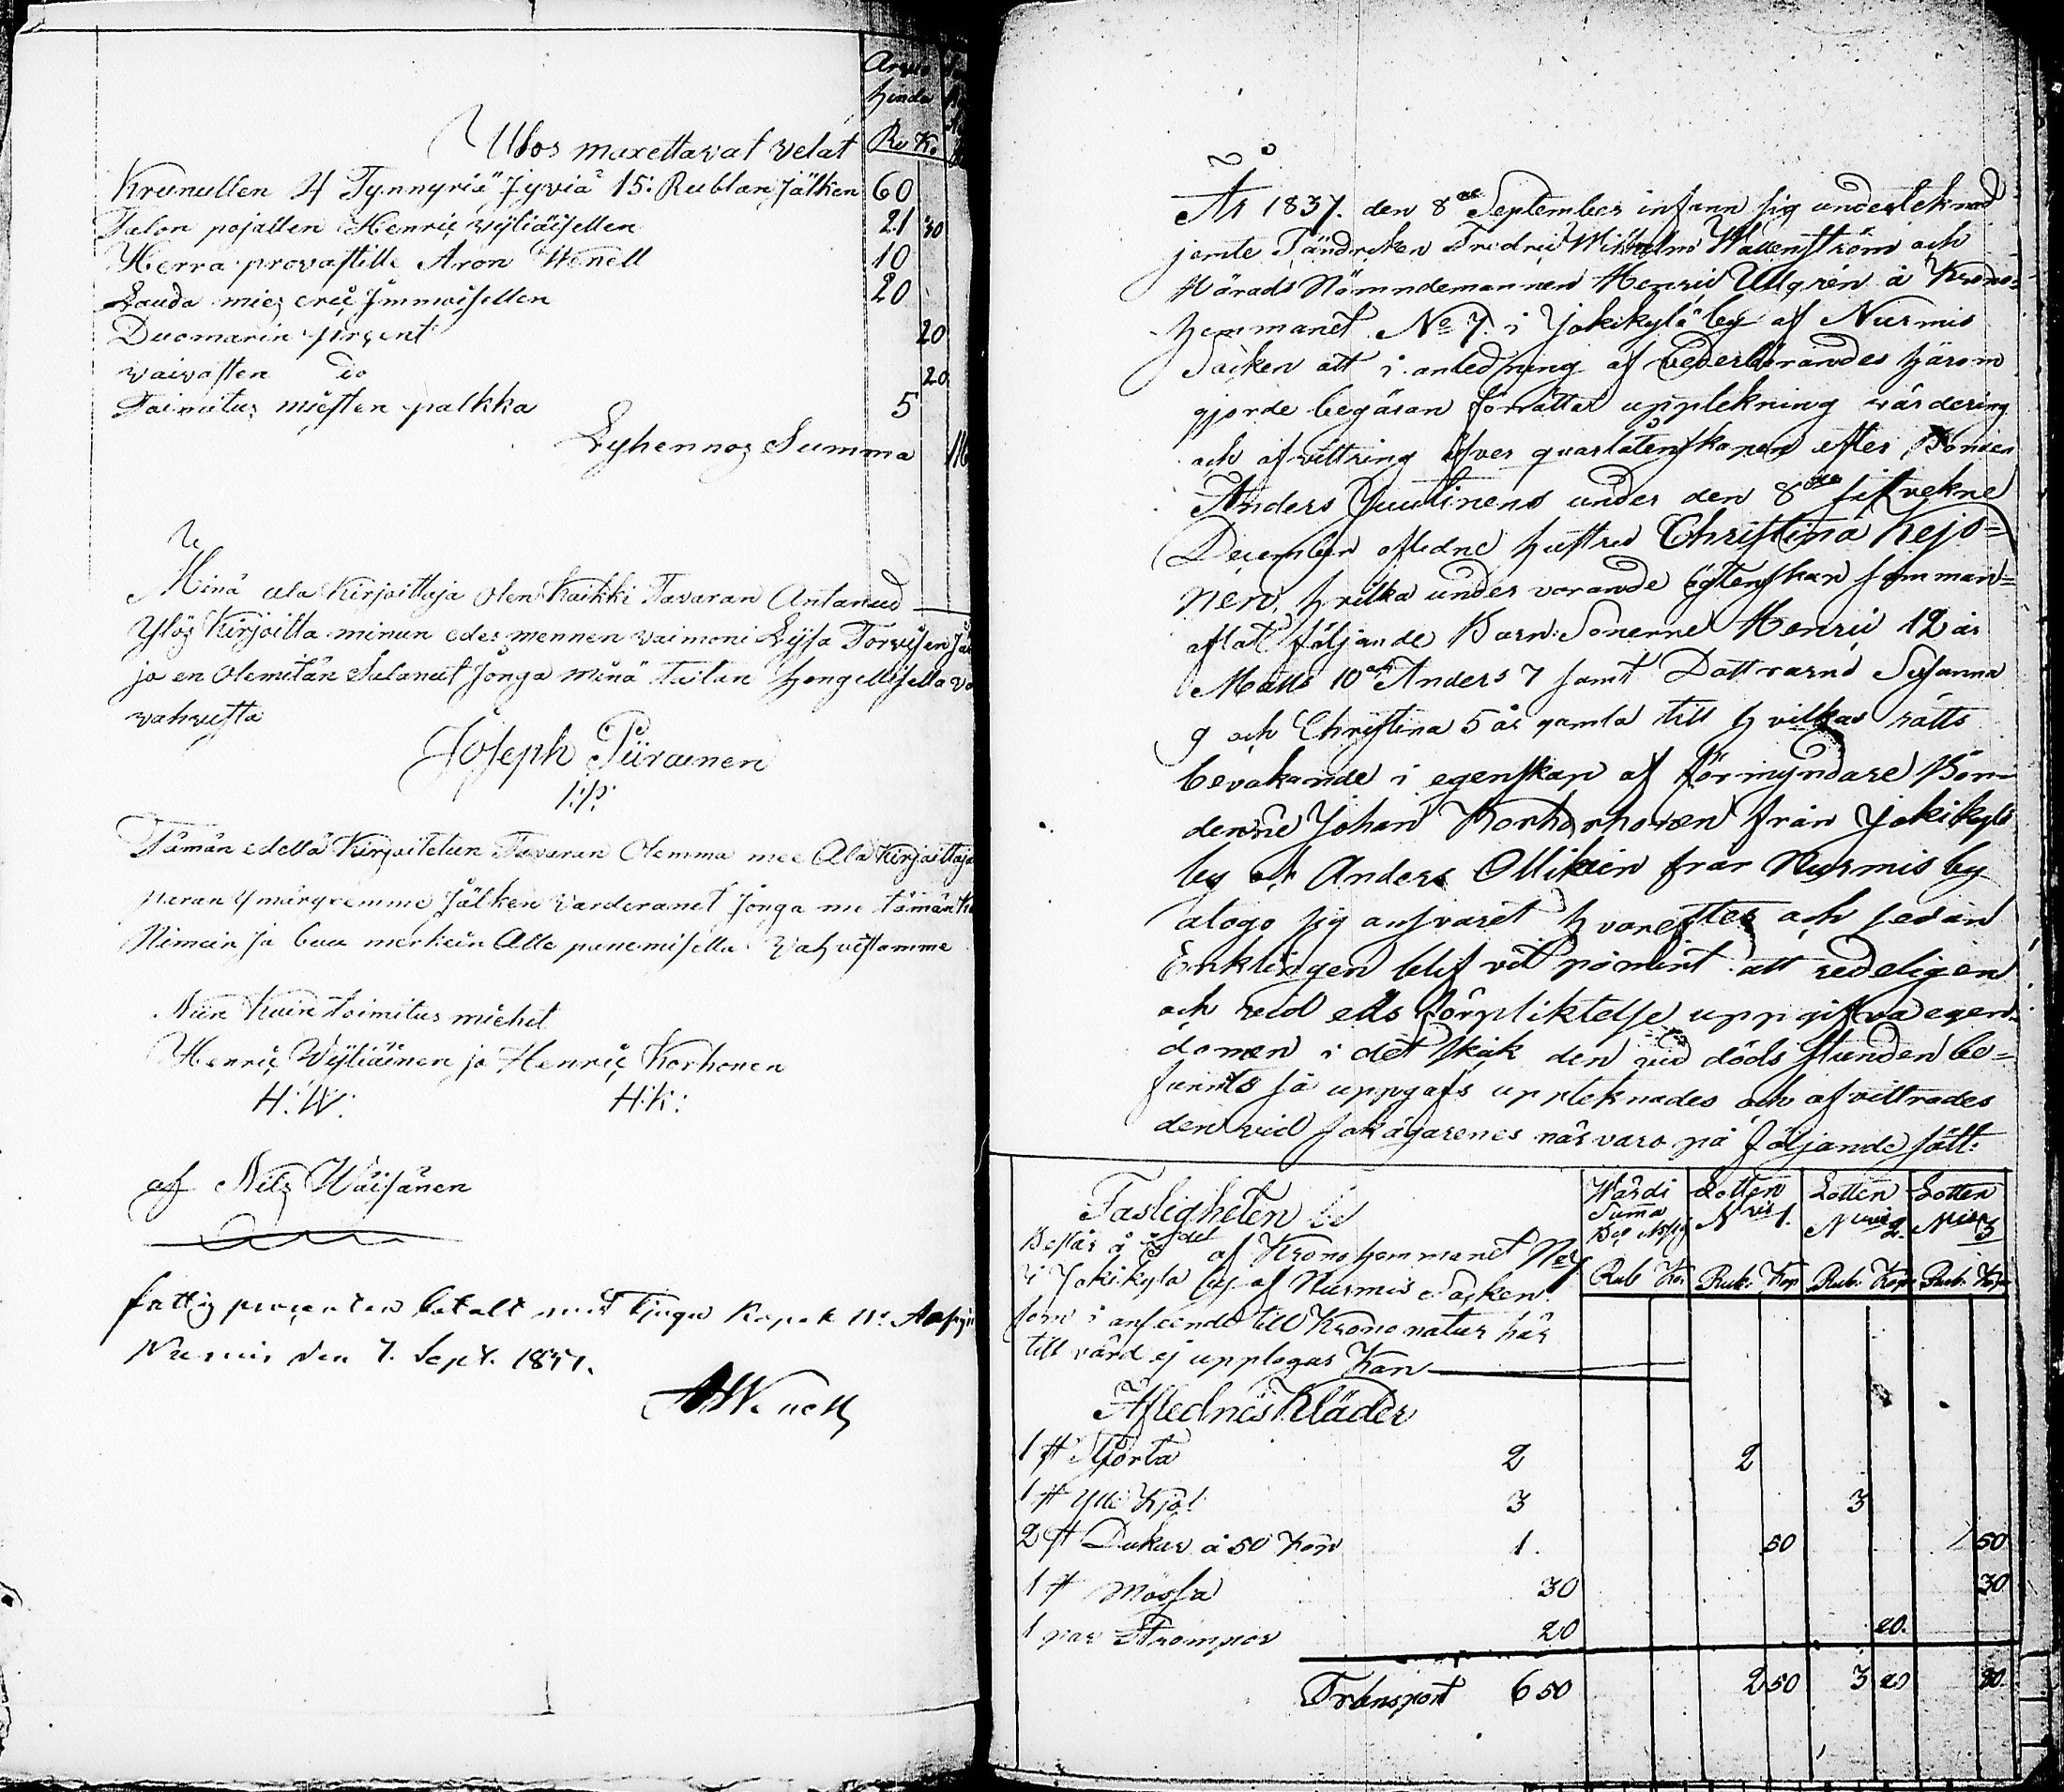 Arvio
hinda
Ru Ko
Ulos maxettavat velat
Krunullen 4 Tynnyriä Jyviä 15: Rublan Jälken 60
Talon pojallen Henric Wyliäisellen 21 30
Herra provastille Aron Wenell 10
Lauda mies eric Immoisellen 20
Duomarin prosent 20
vaivasten do 20
Toimitus miesten palkka 5
Lyhennos Summa 116
Minä ala Kirjoittaja olen Kaikki Tavaran Antanud
Ylös Kirjoitta minun edes mennen vaimoni Lysa Torvisen
ja en olemitän Salanut Jonga minä taitan hengellisella
vahvista
Joseph Piirainen
I:P:
Tämän edellä Kirjoitetun Tavaran Olemma me Ala Kirjoittaja
paran ymärryxemme Jälken Varderanet Jonga me tämän
Nimein ja buu merkein Alle panemisella Vahvistamme
Niin Kuin toimitus miehet
Henric Wyliäinen ja Henric Korhonen
H:W: H:K:
af Nils Wäisänen
fattig procenten betalt med Tjugu Kopek Bo Assign
Nurmis den 7. Sept. 1837.
AWenell
År 1837. den 8de September infann sig underteknad
jemte Fändriken Fredric Wilhelm Wallenström och
Härads Nämndemannen Henric Ullgrén å Krono-
hemmanet No 7. i Jokikylä by af Nurmis
Socken att i anledning af vederbörandes härom
gjorde begäran förrätta upplekning värdering
och afvittring öfver qvarlåtenskapen efter Bonden
Anders Juutinens under den 8de sistvekne
December aflidne hustru Christina Kejo-
nen, hvilka under varande ägtenskap samman-
aflat följande Barn: Sönerne Henric 12 år
Matts 10 och Anders 7 samt Döttrarne Susanna
9 och Christina 5 år gamla till hvilkas rätts
bevakande i egenskap af förmyndare Bön-
derne Johan Korhorhonen från Jokikylä
by och Anders Ollikain från Nurmis by
atogo sig ansvaret hvarefter och sedan
Enklingen blifvit påmint att redeligen
och veid eds förpliktelse uppgifva egen-
domen i det skik den vid döds stunden be-
funnits så uppgafs uppteknades och afvittrades
den vid sakägarenes närvaro på följande sätt:
Wärdi Summa Bco Assig Lotten N ris 1. Lotten N ris 2. Lotten N ris 3
Rub Kop Rub: Kop Rub: Kop Rub: Kop
Fastigheten
Består å del af Kronohemmanet No 7
i Jokikylä by af Nurmis Socken
som i anseende till Krono natur här
till värd ej upplagas Kan
Aflednes Kläder
1 st Skjorta 2 2
1 st Ylle Kjol 3 3
2 st Dukar à 50 Kop 1. 50 50
1 st Mössa 30 30
1 par Strumpor 20 20.
Transport 6 50 2 50 3 20 80.